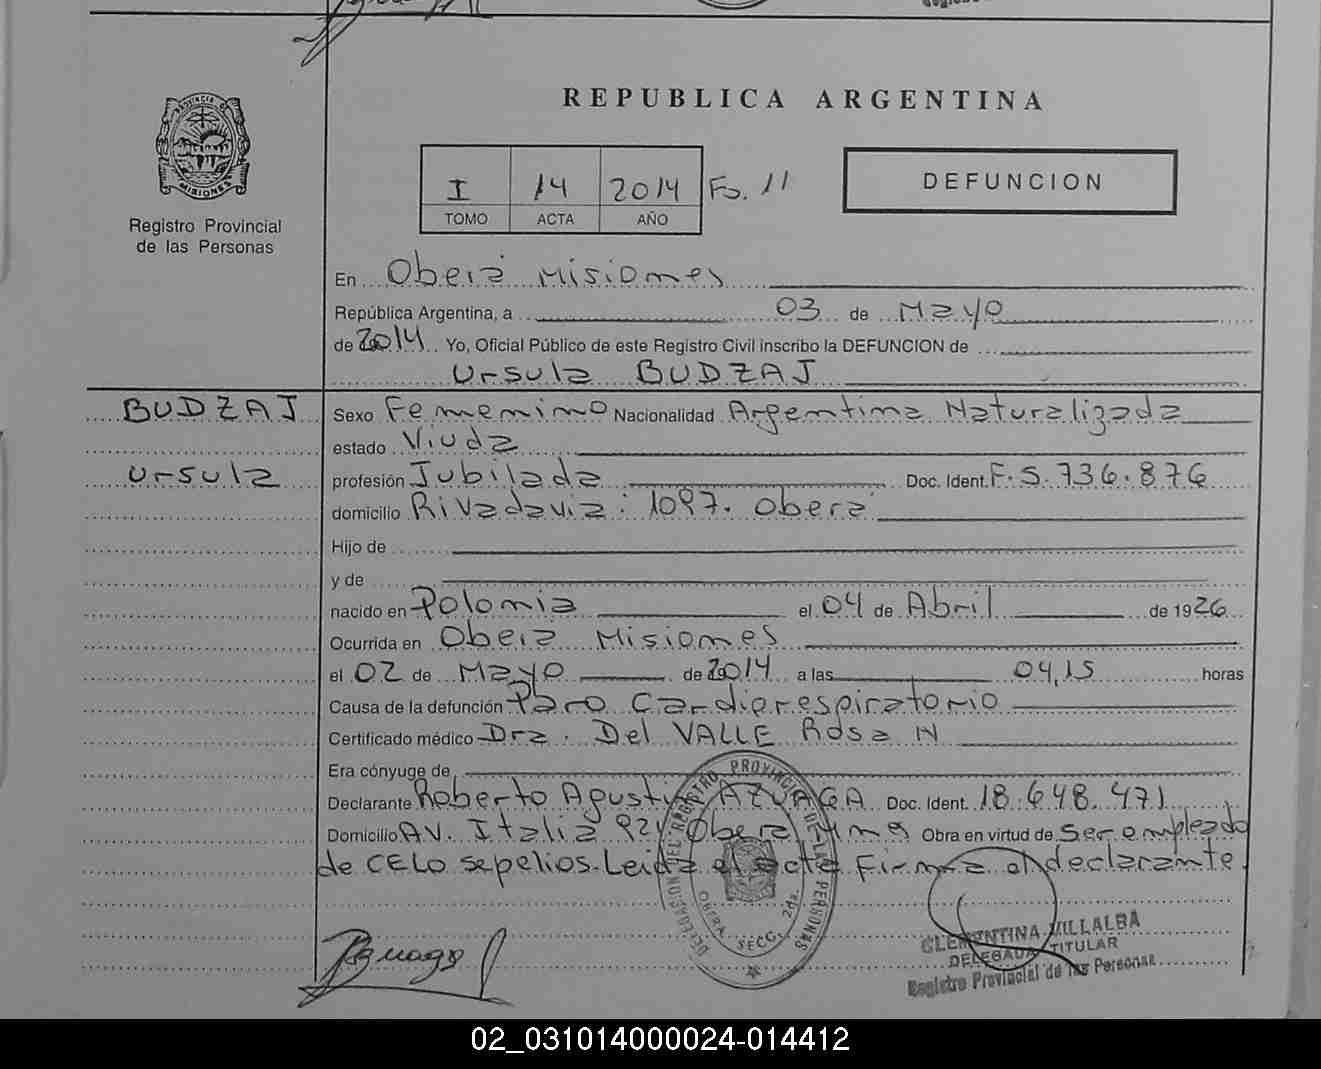 REPUBLICA ARGENTINA
PROVINCIA DE
MISIONES
Registro Provincial
de las Personas
I 14 2014 Fo. 11
TOMO ACTA AÑO
DEFUNCION
En Oberá Misiones
República Argentina, a 03 de Mayo
de 2014 Yo, Oficial Público de este Registro Civil inscribo la DEFUNCION de
Ursula BUDZAJ
BUDZAJ
Ursula
Sexo Femenino Nacionalidad Argentina Naturalizada
estado Viuda
profesión Jubilada Doc. Ident. F. 5.736.876
domicilio Rivadavia: 1097. Oberá
Hijo de
y de
nacido en Polonia el 04 de Abril de 1926
Ocurrida en Oberá Misiones
el 02 de Mayo de 2014 a las 04,15 horas
Causa de la defunción Paro Cardiorespiratorio
Certificado médico Dra. Del VALLE Rosa N
Era cónyuge de
Declarante Roberto Agustin AZUAGA Doc. Ident. 18.648.471
Domicilio AV. Italia 921 Oberá Mnes Obra en virtud de ser empleado
de CELO sepelios. Leida el acta Firma el declarante.
DELEGACION DEL REGISTRO PROVINCIAL DE LAS PERSONAS
OBERA SECC. 2da.
CLEMENTINA VILLALBA
DELEGADA TITULAR
Registro Provincial de las Personas
02_031014000024-014412